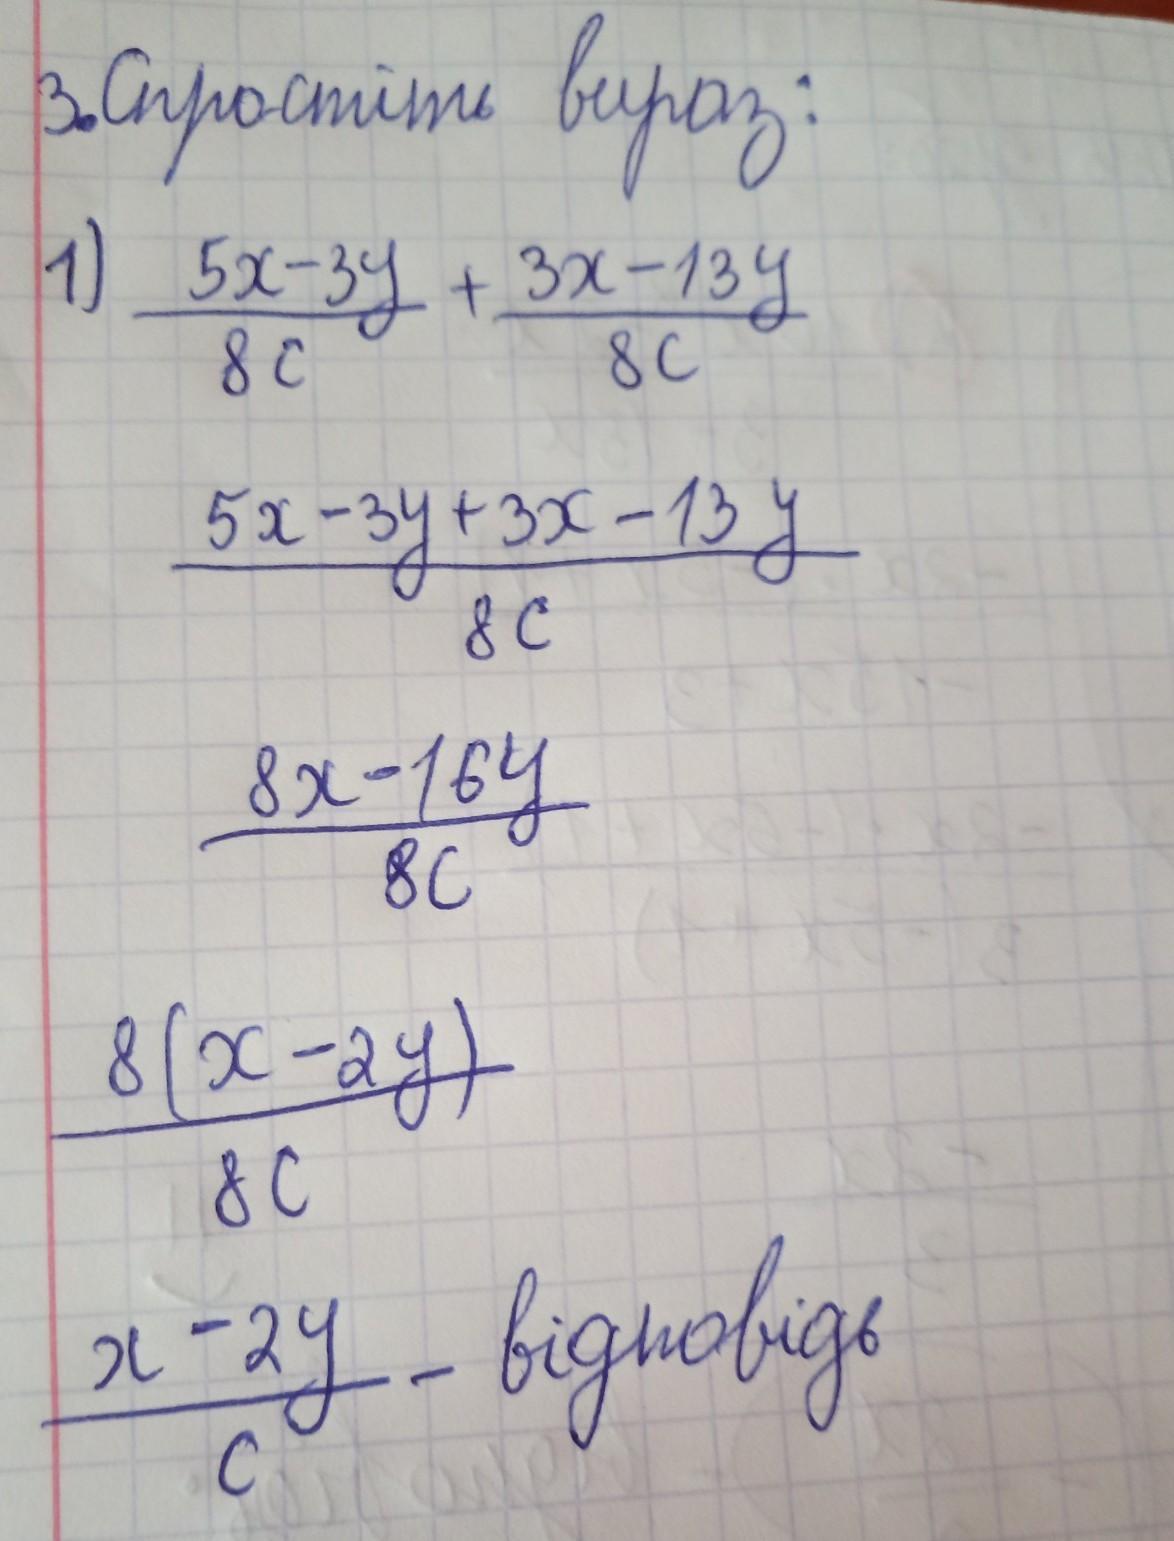 3. Спростіть вираз:
1) 5x-3y + 3x-13y
8c 8c
5x-3y+3x-13y
8c
8x-16y
8c
8(x-2y)
8c
x-2y - відповідь
c